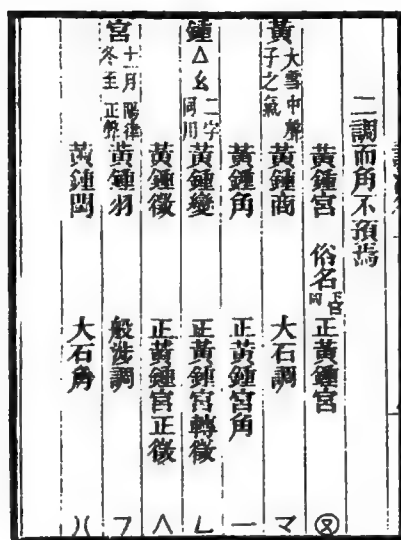 二調而角不預焉
黃鍾宮 俗名 下皆同 正黃鍾宮
黃 大雪中聲 子之氣 黃鍾商 大石調 マ
黃鍾角 正黃鍾宮角 一
鍾 △ 幺 二字同用 黃鍾變 正黃鍾宮轉徵 ㄴ
黃鍾徵 正黃鍾宮正徵 人
宮 十一月 冬至 陽律 正聲 黃鍾羽 般涉調 フ
黃鍾閏 大石角 ハ